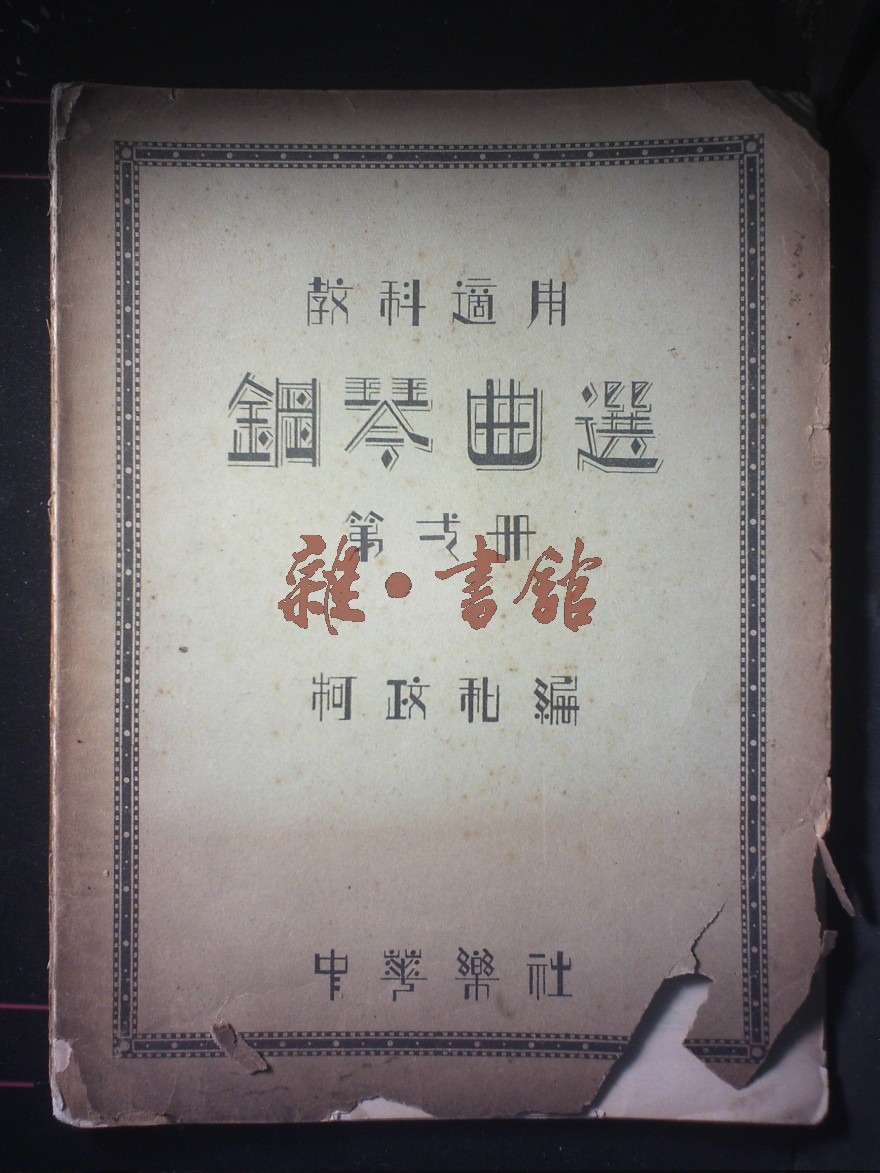 教科適用
鋼琴曲選
第弍冊
雜·書舘
柯政和編
中華樂社